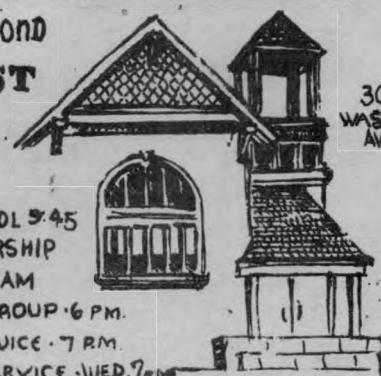 OND
ST
30
WAS
AV
OL 9:45
RSHIP
AM
ROUP · 6 PM.
VICE · 7 P.M.
ERVICE · WED. 7